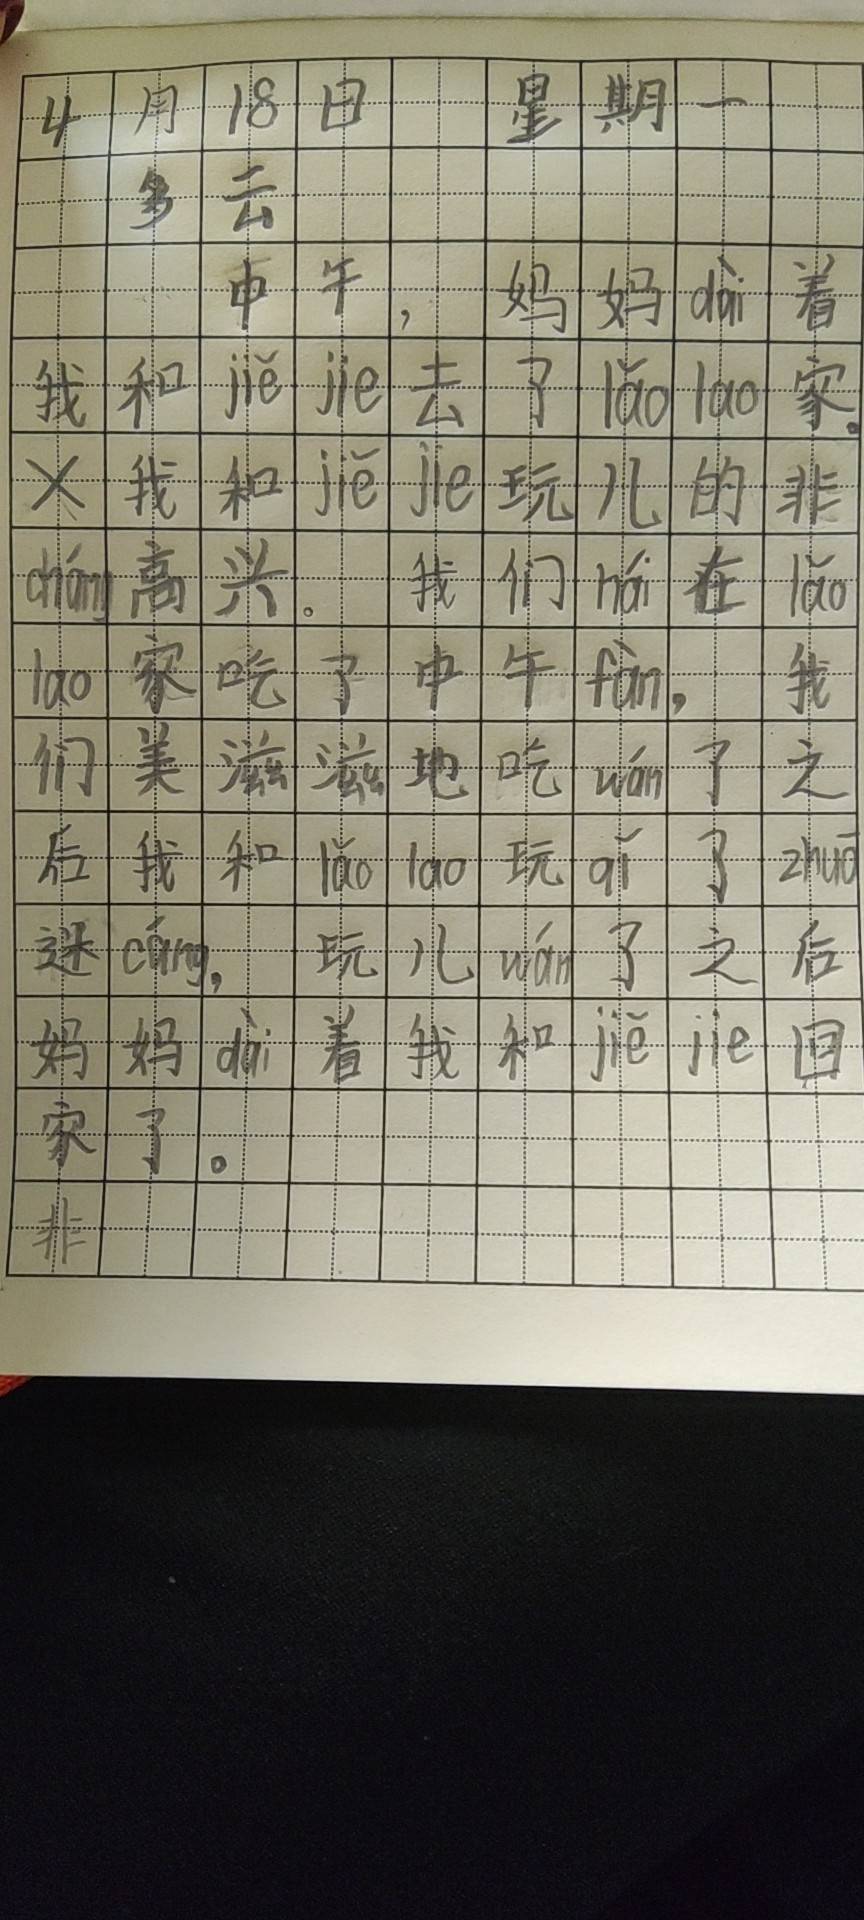 4月18日 星期一
多云
中午，妈妈dài着
我和jiě jie去了lǎo lao家。
又我和jiě jie玩儿的非
cháng高兴。我们hái在lǎo
lao家吃了中午fàn，我
们美滋滋地吃wán了之
后我和lǎo lao玩qǐ了zhuō
迷cáng，玩儿wán了之后
妈妈dài着我和jiě jie回
家了。
非